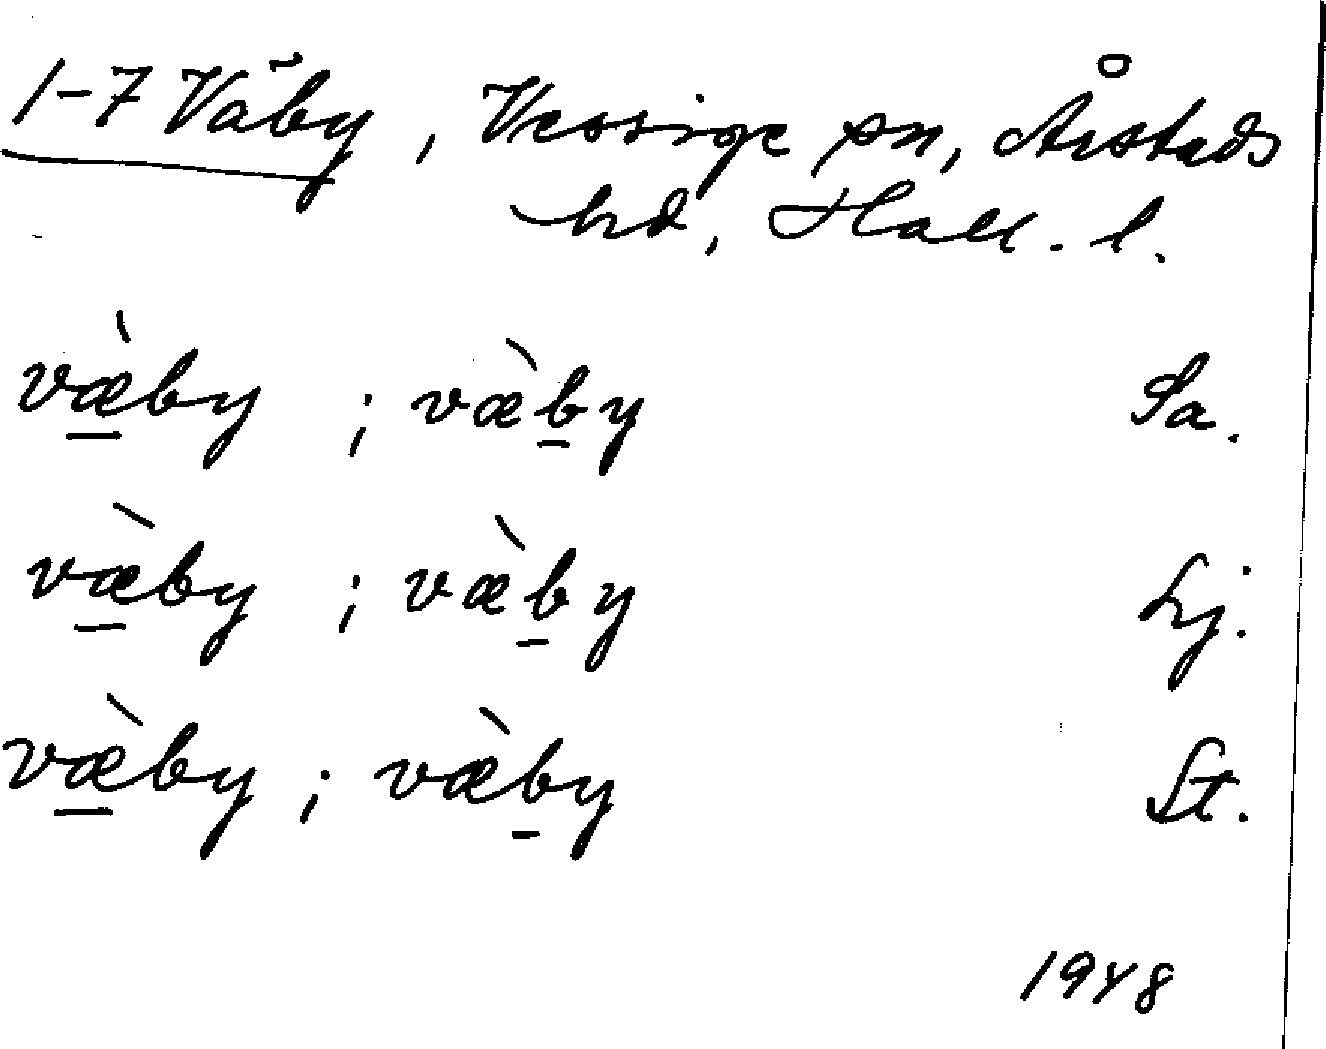 1-7 Väby, Vessige sn, Årstads
hd, Hall. l.
væ̀by ; væ̀by Sa.
væ̀by ; væ̀by Lj.
væ̀by ; væ̀by St.
1948